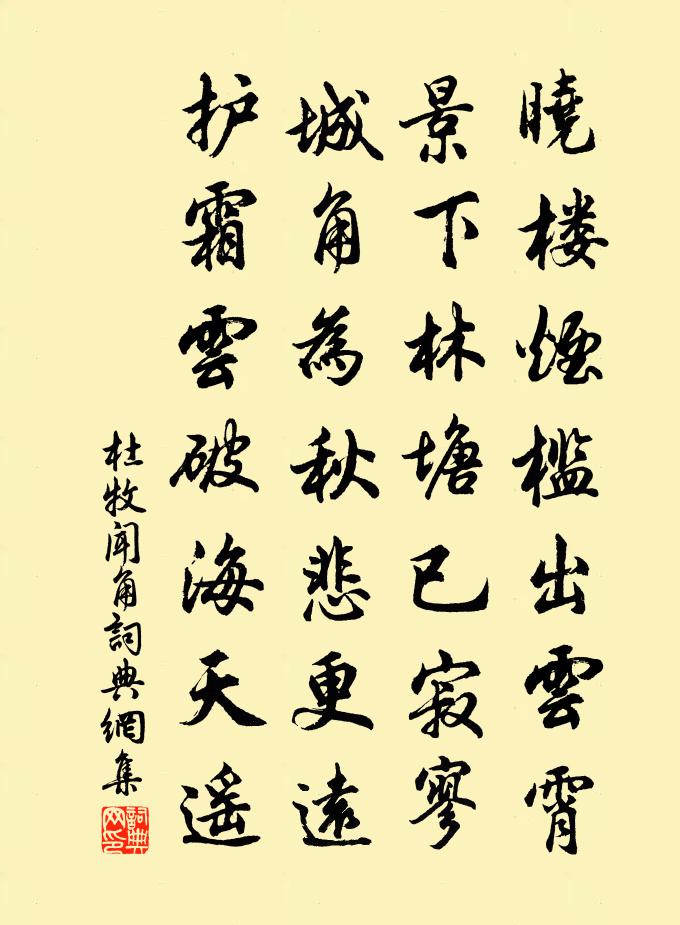 曉楼煙檻出雲霄
景下林塘已寂寥
城角為秋悲更遠
护霜雲破海天遥
杜牧聞角詞典網集
詞典网印